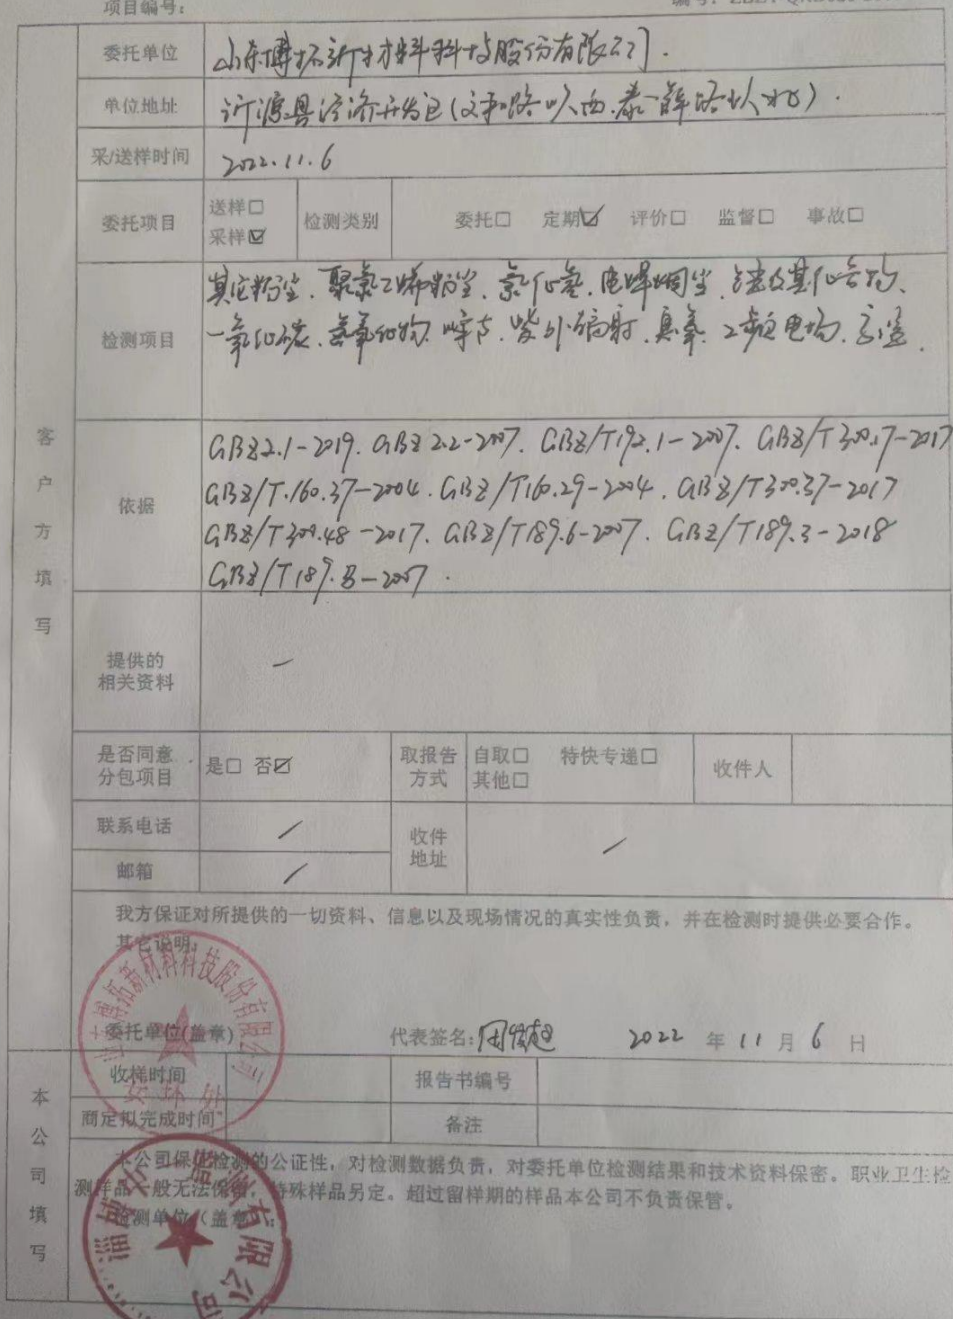 项目编号:
委托单位 山东博拓新材料科技股份有限公司.
单位地址 沂源县经济开发区(文和路以西.泰薛路以北).
采/送样时间 2022.11.6
委托项目 送样□ 采样☑ 检测类别 委托□ 定期☑ 评价□ 监督□ 事故□
检测项目 其它粉尘、聚氯乙烯粉尘、氯化氢、电焊烟尘、锰及其化合物、
一氧化碳、氮氧化物、噪声、紫外辐射、臭氧、工频电场、高温.
依据 GBZ2.1-2019. GBZ2.2-2007. GBZ/T192.1-2007. GBZ/T300.17-2017
GBZ/T.160.37-2004. GBZ/T160.29-2004. GBZ/T300.37-2017
GBZ/T300.48-2017. GBZ/T189.6-2007. GBZ/T189.3-2018
GBZ/T189.8-2007.
客户方填写
提供的
相关资料 —
是否同意
分包项目 是□ 否☑ 取报告
方式 自取□ 特快专递□
其他□ 收件人
联系电话 / 收件
地址 /
邮箱 /
我方保证对所提供的一切资料、信息以及现场情况的真实性负责，并在检测时提供必要合作。
其它说明:
山东博拓新材料科技股份有限公司
安环处
委托单位(盖章) 代表签名: 2022 年 11 月 6 日
本公司填写
收样时间 报告书编号
商定拟完成时间 备注
本公司保证检测的公证性，对检测数据负责，对委托单位检测结果和技术资料保密。职业卫生检
测样品一般无法保留，特殊样品另定。超过留样期的样品本公司不负责保管。
检测单位（盖章）:
有限公司